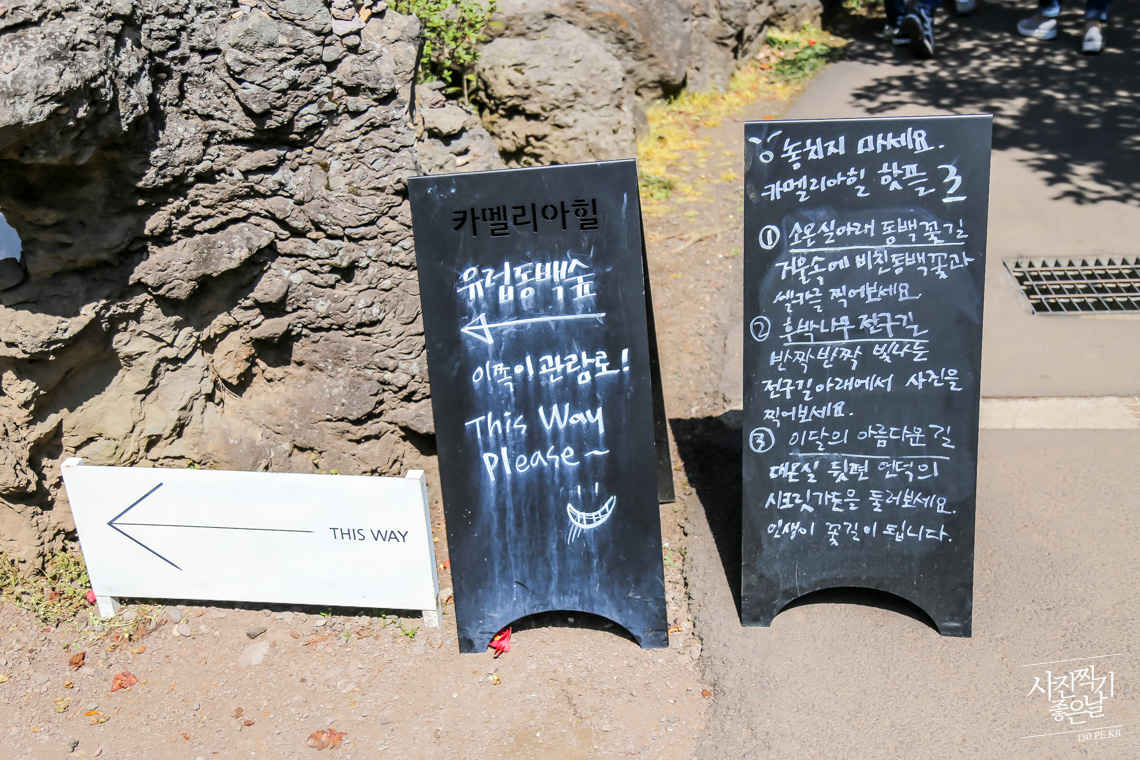 THIS WAY
카멜리아힐
유럽동백숲
이쪽이 관람로!
This Way
Please~
놓치지 마세요.
카멜리아힐 핫플 3
① 소온실아래 동백꽃길
거울속에 비친동백꽃과
셀카를 찍어보세요.
② 후박나무 전구길
반짝반짝 빛나는
전구길아래에서 사진을
찍어보세요.
③ 이달의 아름다운 길
대온실 뒷편 언덕의
시크릿가든을 둘러보세요.
인생이 꽃길이 됩니다.
사진찍기
좋은날
130.PE.KR